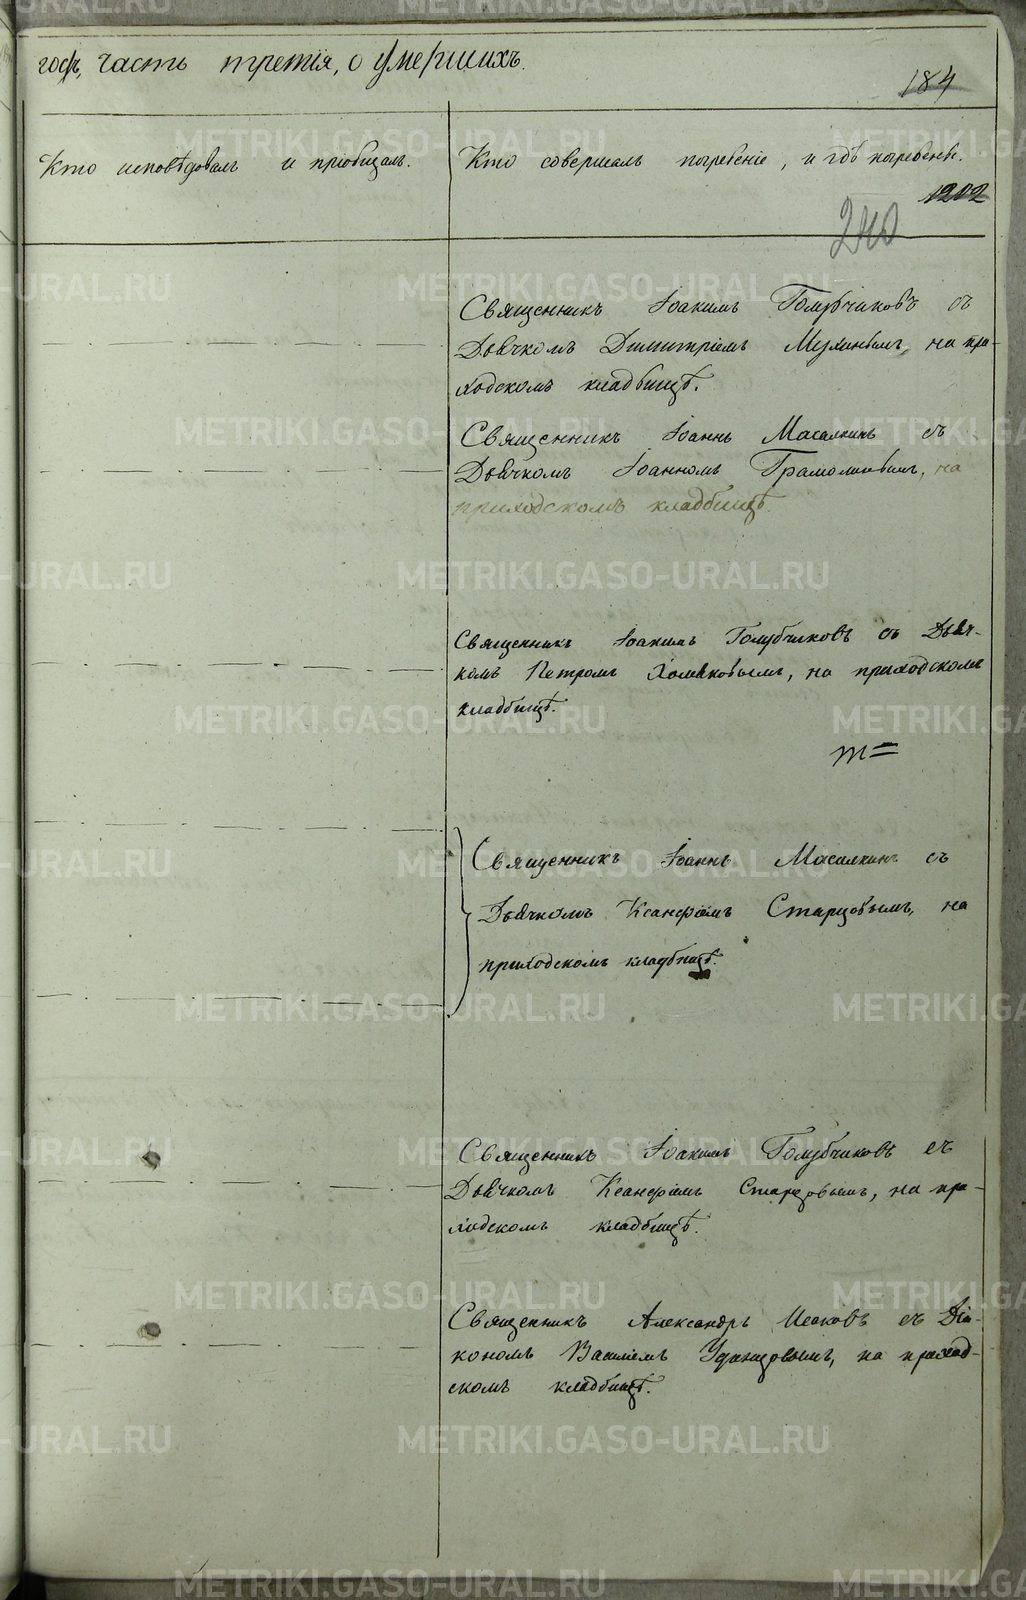 годъ, часть третія, о умершихъ.
184
Кто исповѣдовалъ и пріобщалъ.
Кто совершалъ погребеніе, и гдѣ погребены.
1202
240
Священникъ Іоакимъ Голубчиковъ съ
Дьячкомъ Димитріемъ Мухинымъ, на при-
ходскомъ кладбищѣ.
Священникъ Іоаннъ Масалкинъ съ
Дьячкомъ Іоанномъ Грамолинымъ, на
приходскомъ кладбищѣ.
Священникъ Іоакимъ Голубчиковъ съ Дьяч-
комъ Петромъ Хомяковымъ, на приходскомъ
кладбищѣ.
Священникъ Іоаннъ Масалкинъ съ
Дьячкомъ Ксанфіемъ Старцовымъ, на
приходскомъ кладбищѣ.
Священникъ Іоакимъ Голубчиковъ съ
Дьячкомъ Ксанфіемъ Старцовымъ, на при-
ходскомъ кладбищѣ.
Священникъ Александръ Исаковъ съ Діа-
кономъ Василіемъ Удинцовымъ, на приход-
скомъ кладбищѣ.
METRIKI.GASO-URAL.RU